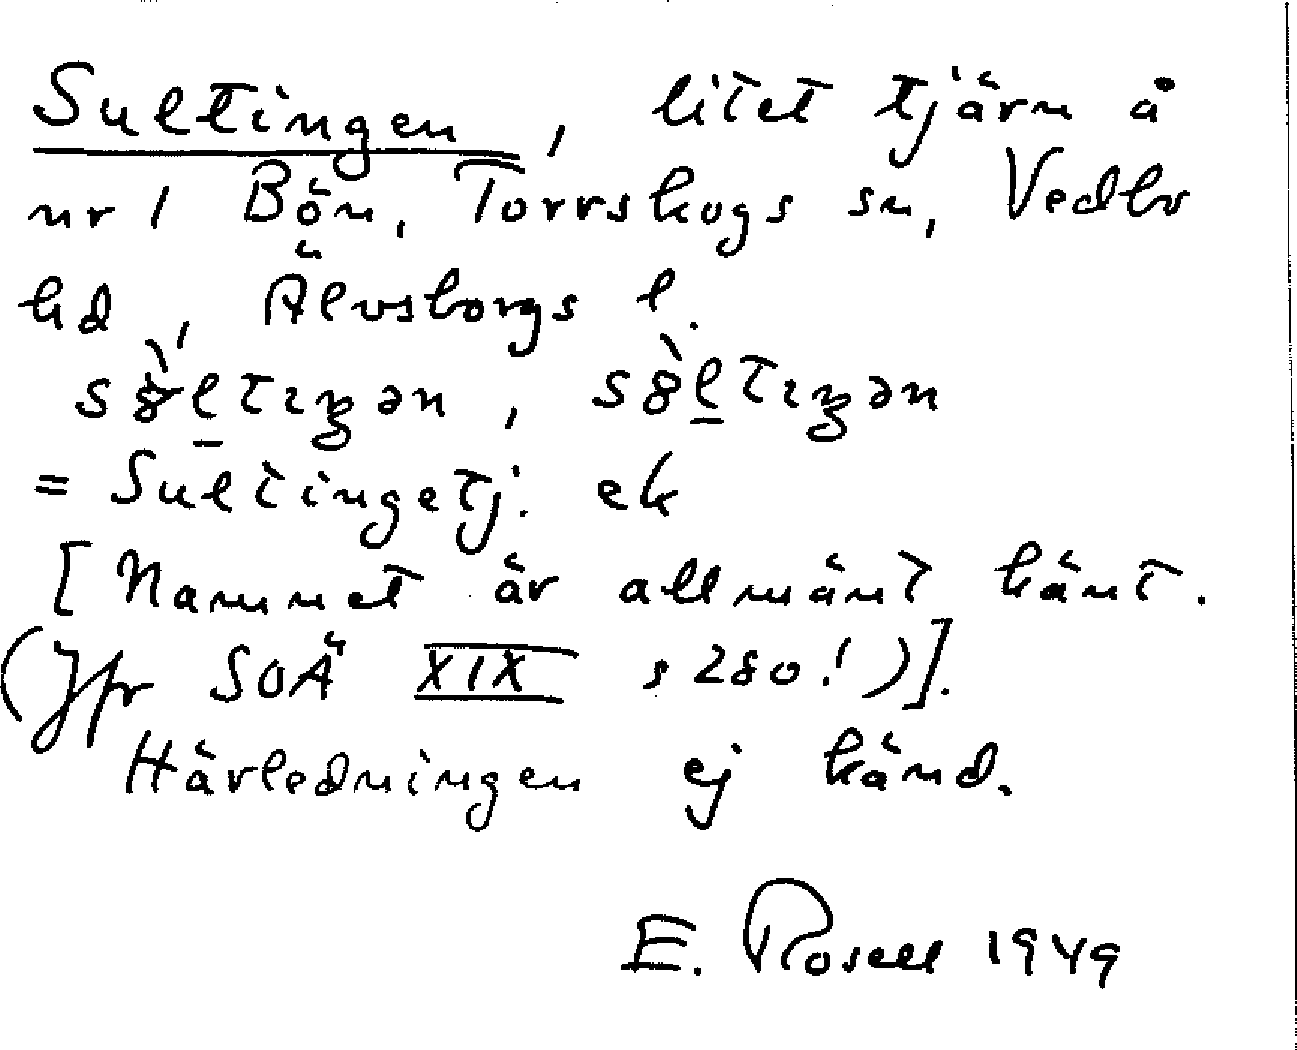 Sultingen, litet tjärn å
nr 1 Bön, Torrskogs sn, Vedbo
hd, Älvsborgs l.
= Sultingetj. ek
[Namnet är allmänt känt.
(Jfr SOÄ XIX s 280!)].
Härledningen ej känd.
E. Rosell 1949